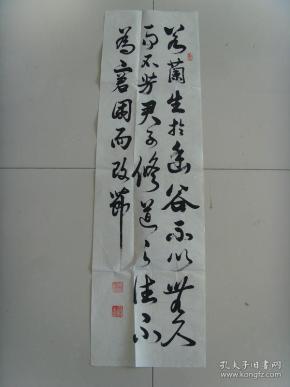 若蘭生於幽谷不以無人
而不芳君子修道之德不
為窘困而改節
孔夫子旧书网